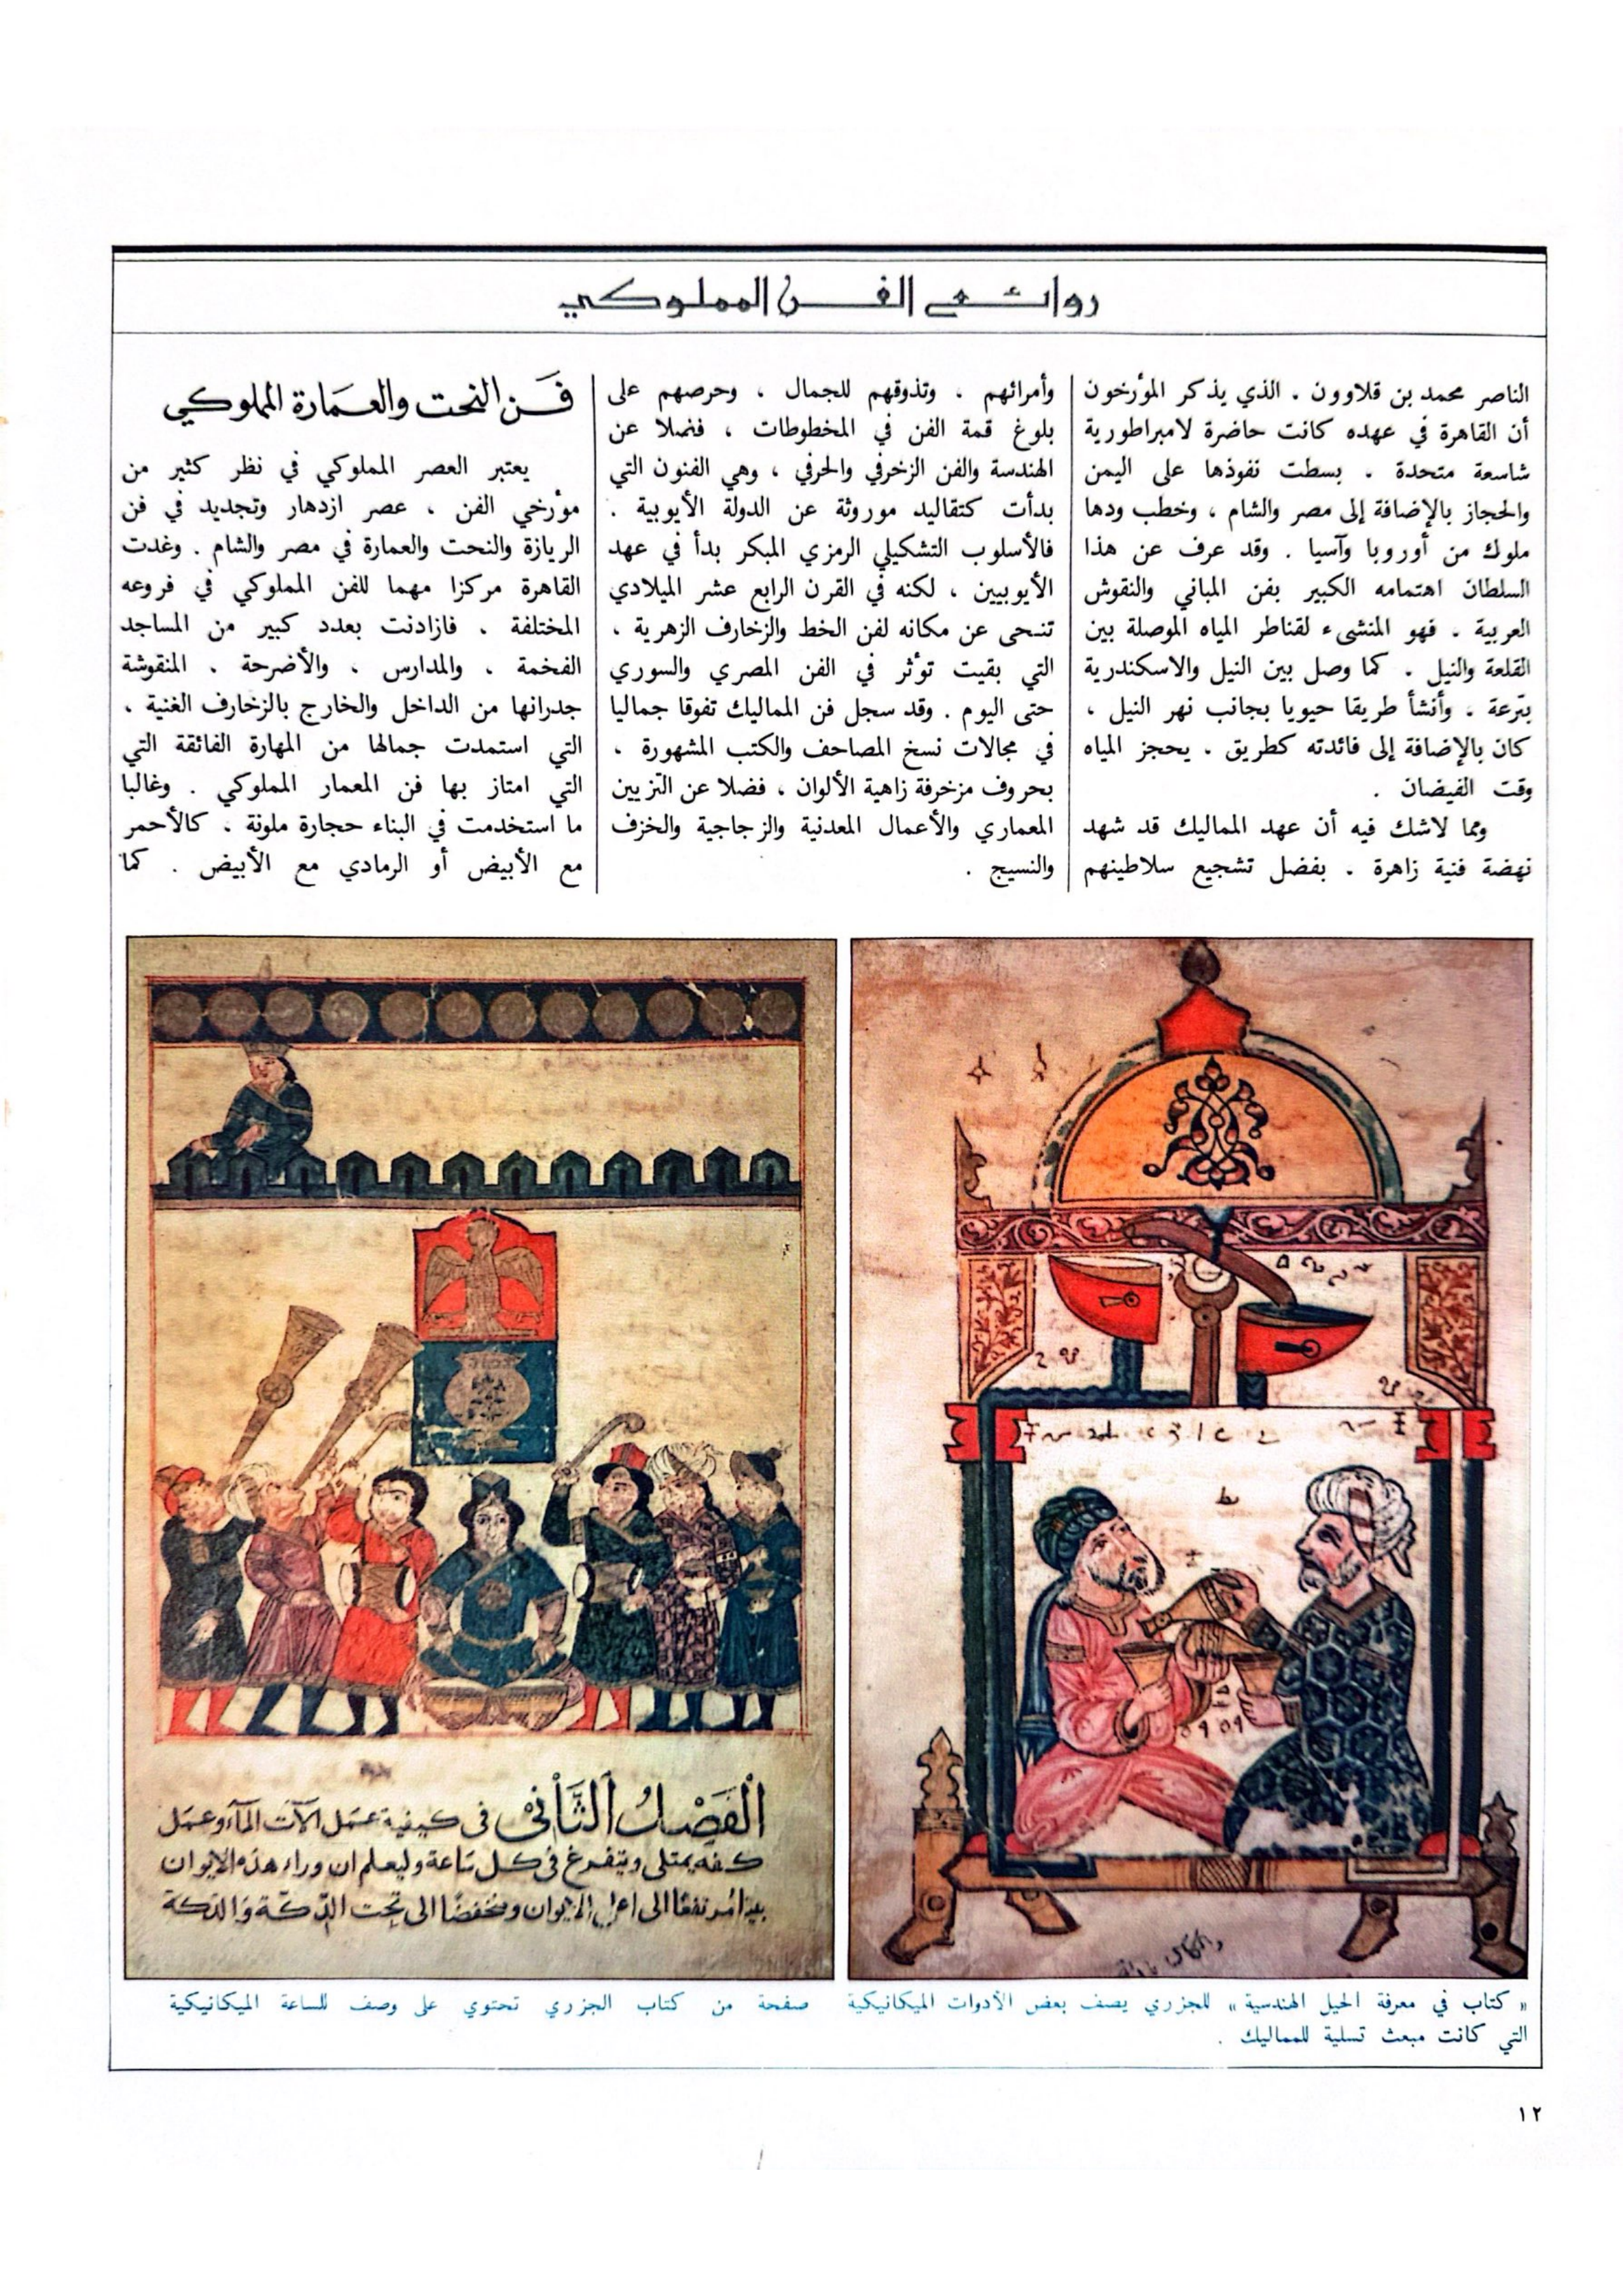 روائع الفن المملوكي
الناصر محمد بن قلاوون . الذي يذكر المؤرخون
أن القاهرة في عهده كانت حاضرة لامبراطورية
شاسعة متحدة . بسطت نفوذها على اليمن
والحجاز بالإضافة إلى مصر والشام ، وخطب ودها
ملوك من أوروبا وآسيا . وقد عرف عن هذا
السلطان اهتمامه الكبير بفن المباني والنقوش
العربية . فهو المنشىء لقناطر المياه الموصلة بين
القلعة والنيل . كما وصل بين النيل والاسكندرية
بترعة . وأنشأ طريقا حيويا بجانب نهر النيل ،
كان بالإضافة إلى فائدته كطريق . يحجز المياه
وقت الفيضان .
ومما لاشك فيه أن عهد المماليك قد شهد
نهضة فنية زاهرة . بفضل تشجيع سلاطينهم
وأمرائهم . وتذوقهم للجمال ، وحرصهم على
بلوغ قمة الفن في المخطوطات ، فضلا عن
الهندسة والفن الزخرفي والحرفي ، وهي الفنون التي
بدأت كتقاليد موروثة عن الدولة الأيوبية .
فالأسلوب التشكيلي الرمزي المبكر بدأ في عهد
الأيوبيين ، لكنه في القرن الرابع عشر الميلادي
تنحى عن مكانه لفن الخط والزخارف الزهرية ،
التي بقيت تؤثر في الفن المصري والسوري
حتى اليوم . وقد سجل فن المماليك تفوقا جماليا
في مجالات نسخ المصاحف والكتب المشهورة ،
بحروف مزخرفة زاهية الألوان ، فضلا عن التزيين
المعماري والأعمال المعدنية والزجاجية والخزف
والنسيج .
فن النحت والعمارة المملوكي
يعتبر العصر المملوكي في نظر كثير من
مؤرخي الفن ، عصر ازدهار وتجديد في فن
الريازة والنحت والعمارة في مصر والشام . وغدت
القاهرة مركزا مهما للفن المملوكي في فروعه
المختلفة . فازادنت بعدد كبير من المساجد
الفخمة . والمدارس ، والأضرحة . المنقوشة
جدرانها من الداخل والخارج بالزخارف الغنية ،
التي استمدت جمالها من المهارة الفائقة التي
التي امتاز بها فن المعمار المملوكي . وغالبا
ما استخدمت في البناء حجارة ملونة ، كالأحمر
مع الأبيض أو الرمادي مع الأبيض . كما
الفصل الثاني في كيفية عمل آلات الماء وعمل
كفه يمتلى ويتفرغ في كل ساعة وليعلم ان وراء هذه الايوان
مرتفعا الى اعلى الايوان ومنخفضا الى تحت الدكة والدكة
« كتاب في معرفة الحيل الهندسية » للجزري يصف بعض الأدوات الميكانيكية
التي كانت مبعث تسلية للمماليك .
صفحة من كتاب الجزري تحتوي على وصف للساعة الميكانيكية
١٢